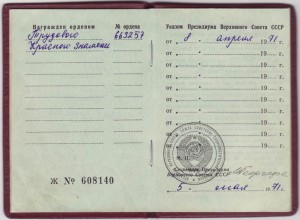 Награжден орденом № ордена
Трудового 663257
Красного Знамени
Ж № 608140
Указом Президиума Верховного Совета СССР
от 8 апреля 1971 г.
от 19 г.
от 19 г.
от 19 г.
от 19 г.
от 19 г.
от 19 г.
от 19 г.
от 19 г.
М. П.
Секретарь Президиума
Верховного Совета СССР
5 мая 1971 г.